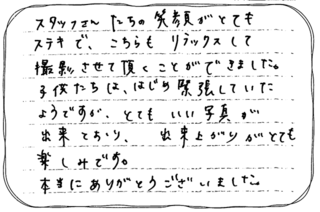 スタッフさんたちの笑顔がとても
ステキで、こちらもリラックスして
撮影させて頂くことができました。
子供たちは、はじめ緊張していた
ようですが、とてもいい写真が
出来ており、出来上がりがとても
楽しみです。
本当にありがとうございました。